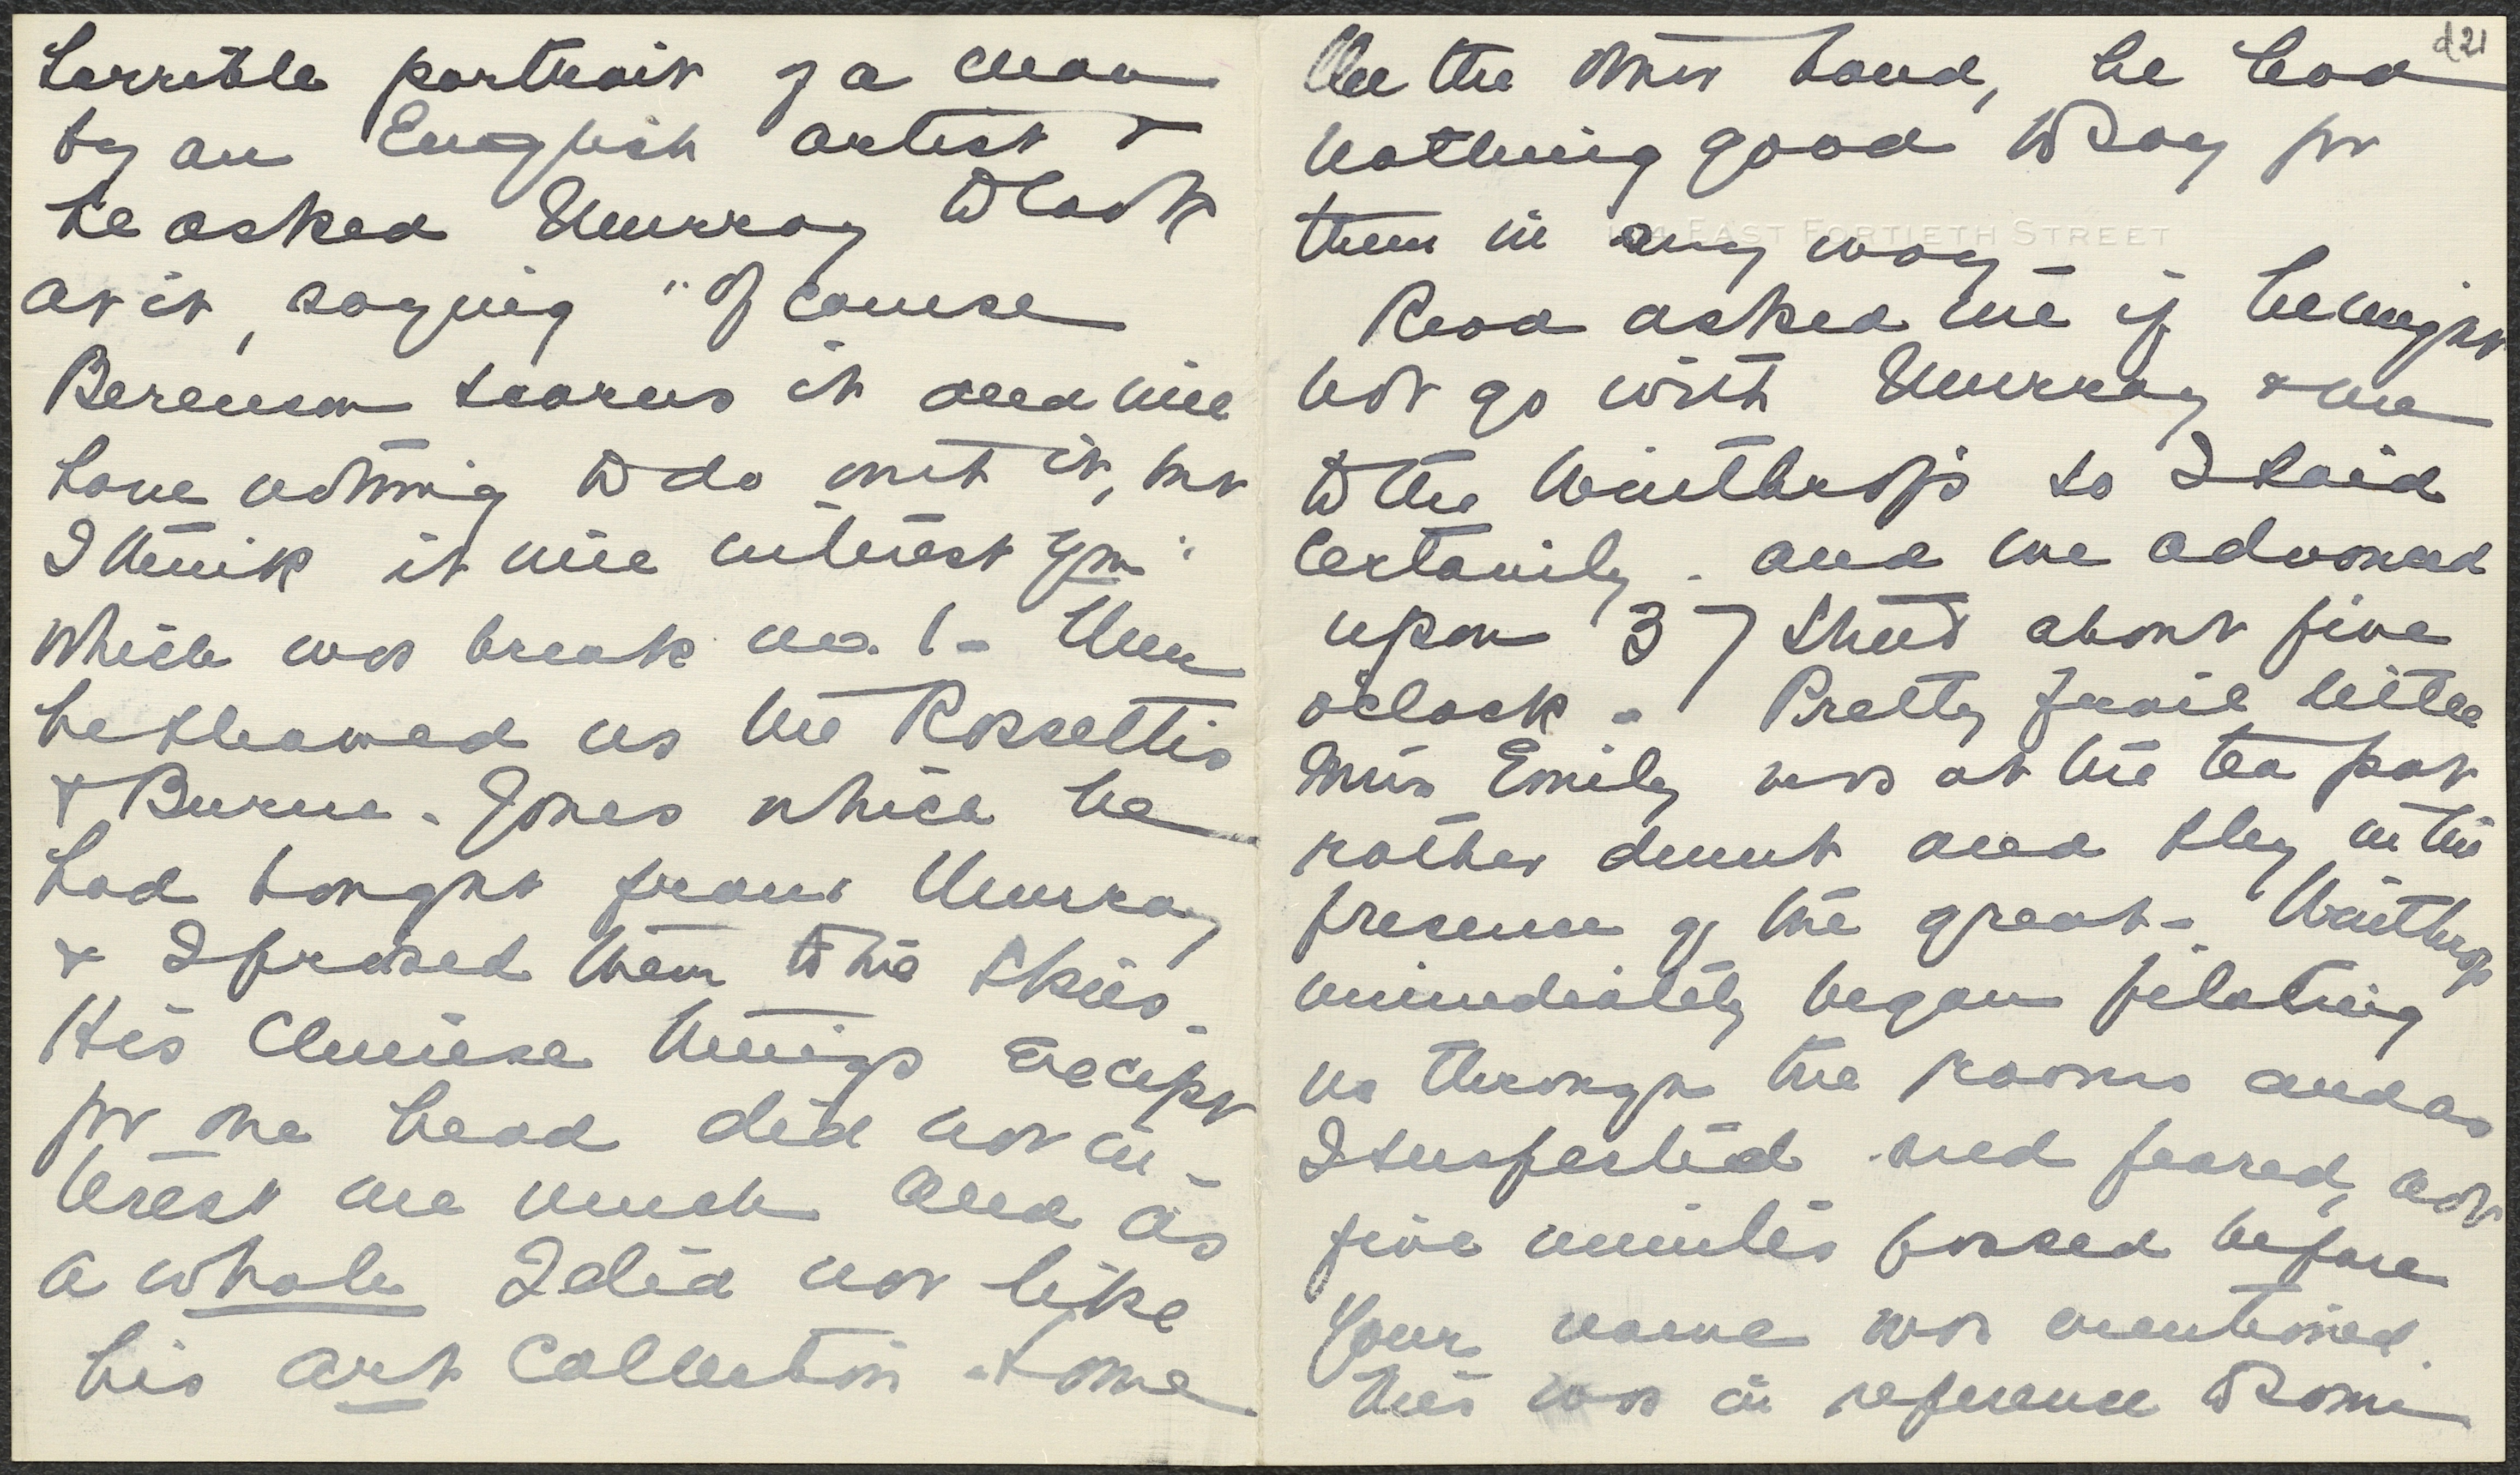 horrible portrait of a man
by an English artist &
he asked Murray to look
at it, saying "Of course
Berenson scorns it and will
have nothing to do with it, but
I think it will interest you"
which was break no. 1 - Then
he showed us the Rossettis
& Burne-Jones which he
had bought from Murray
& I praised them to the skies.
His Chinese things except
for one head did not in-
terest me much and as
a whole I did not like
his art collection - Some
d21
On the other hand, he had
nothing good to say for
them in any way -
EAST FORTIETH STREET
Read asked me if he might
not go with Murray & me
to the Winthrops so I said
certainly - and we advanced
upon 37 Street about five
o'clock - Pretty frail little
Miss Emily was at the tea pot
rather dumb and shy in the
presence of the great - Winthrop
immediately began piloting
us through the rooms and as
I suspected and feared, not
five minutes passed before
Your name was mentioned.
This was in reference to some